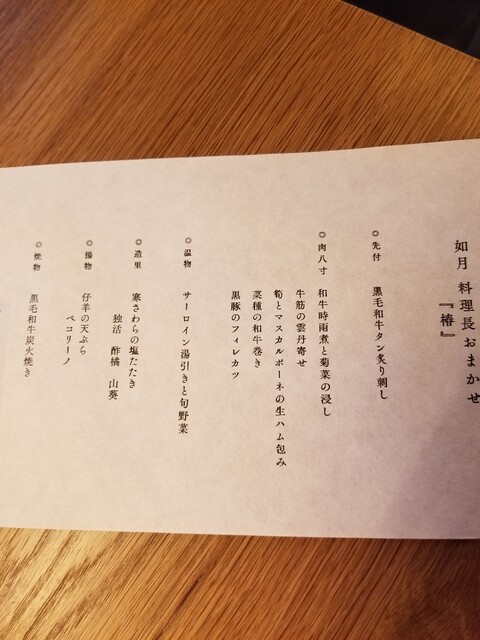 如月 料理長おまかせ
『椿』
◎先付 黒毛和牛タン炙り刺し
◎肉八寸 和牛時雨煮と菊菜の浸し
牛筋の雲丹寄せ
筍とマスカルポーネの生ハム包み
菜種の和牛巻き
黒豚のフィレカツ
◎温物 サーロイン湯引きと旬野菜
◎造里 寒さわらの塩たたき
独活 酢橘 山葵
◎揚物 仔羊の天ぷら
ペコリーノ
◎焼物 黒毛和牛炭火焼き